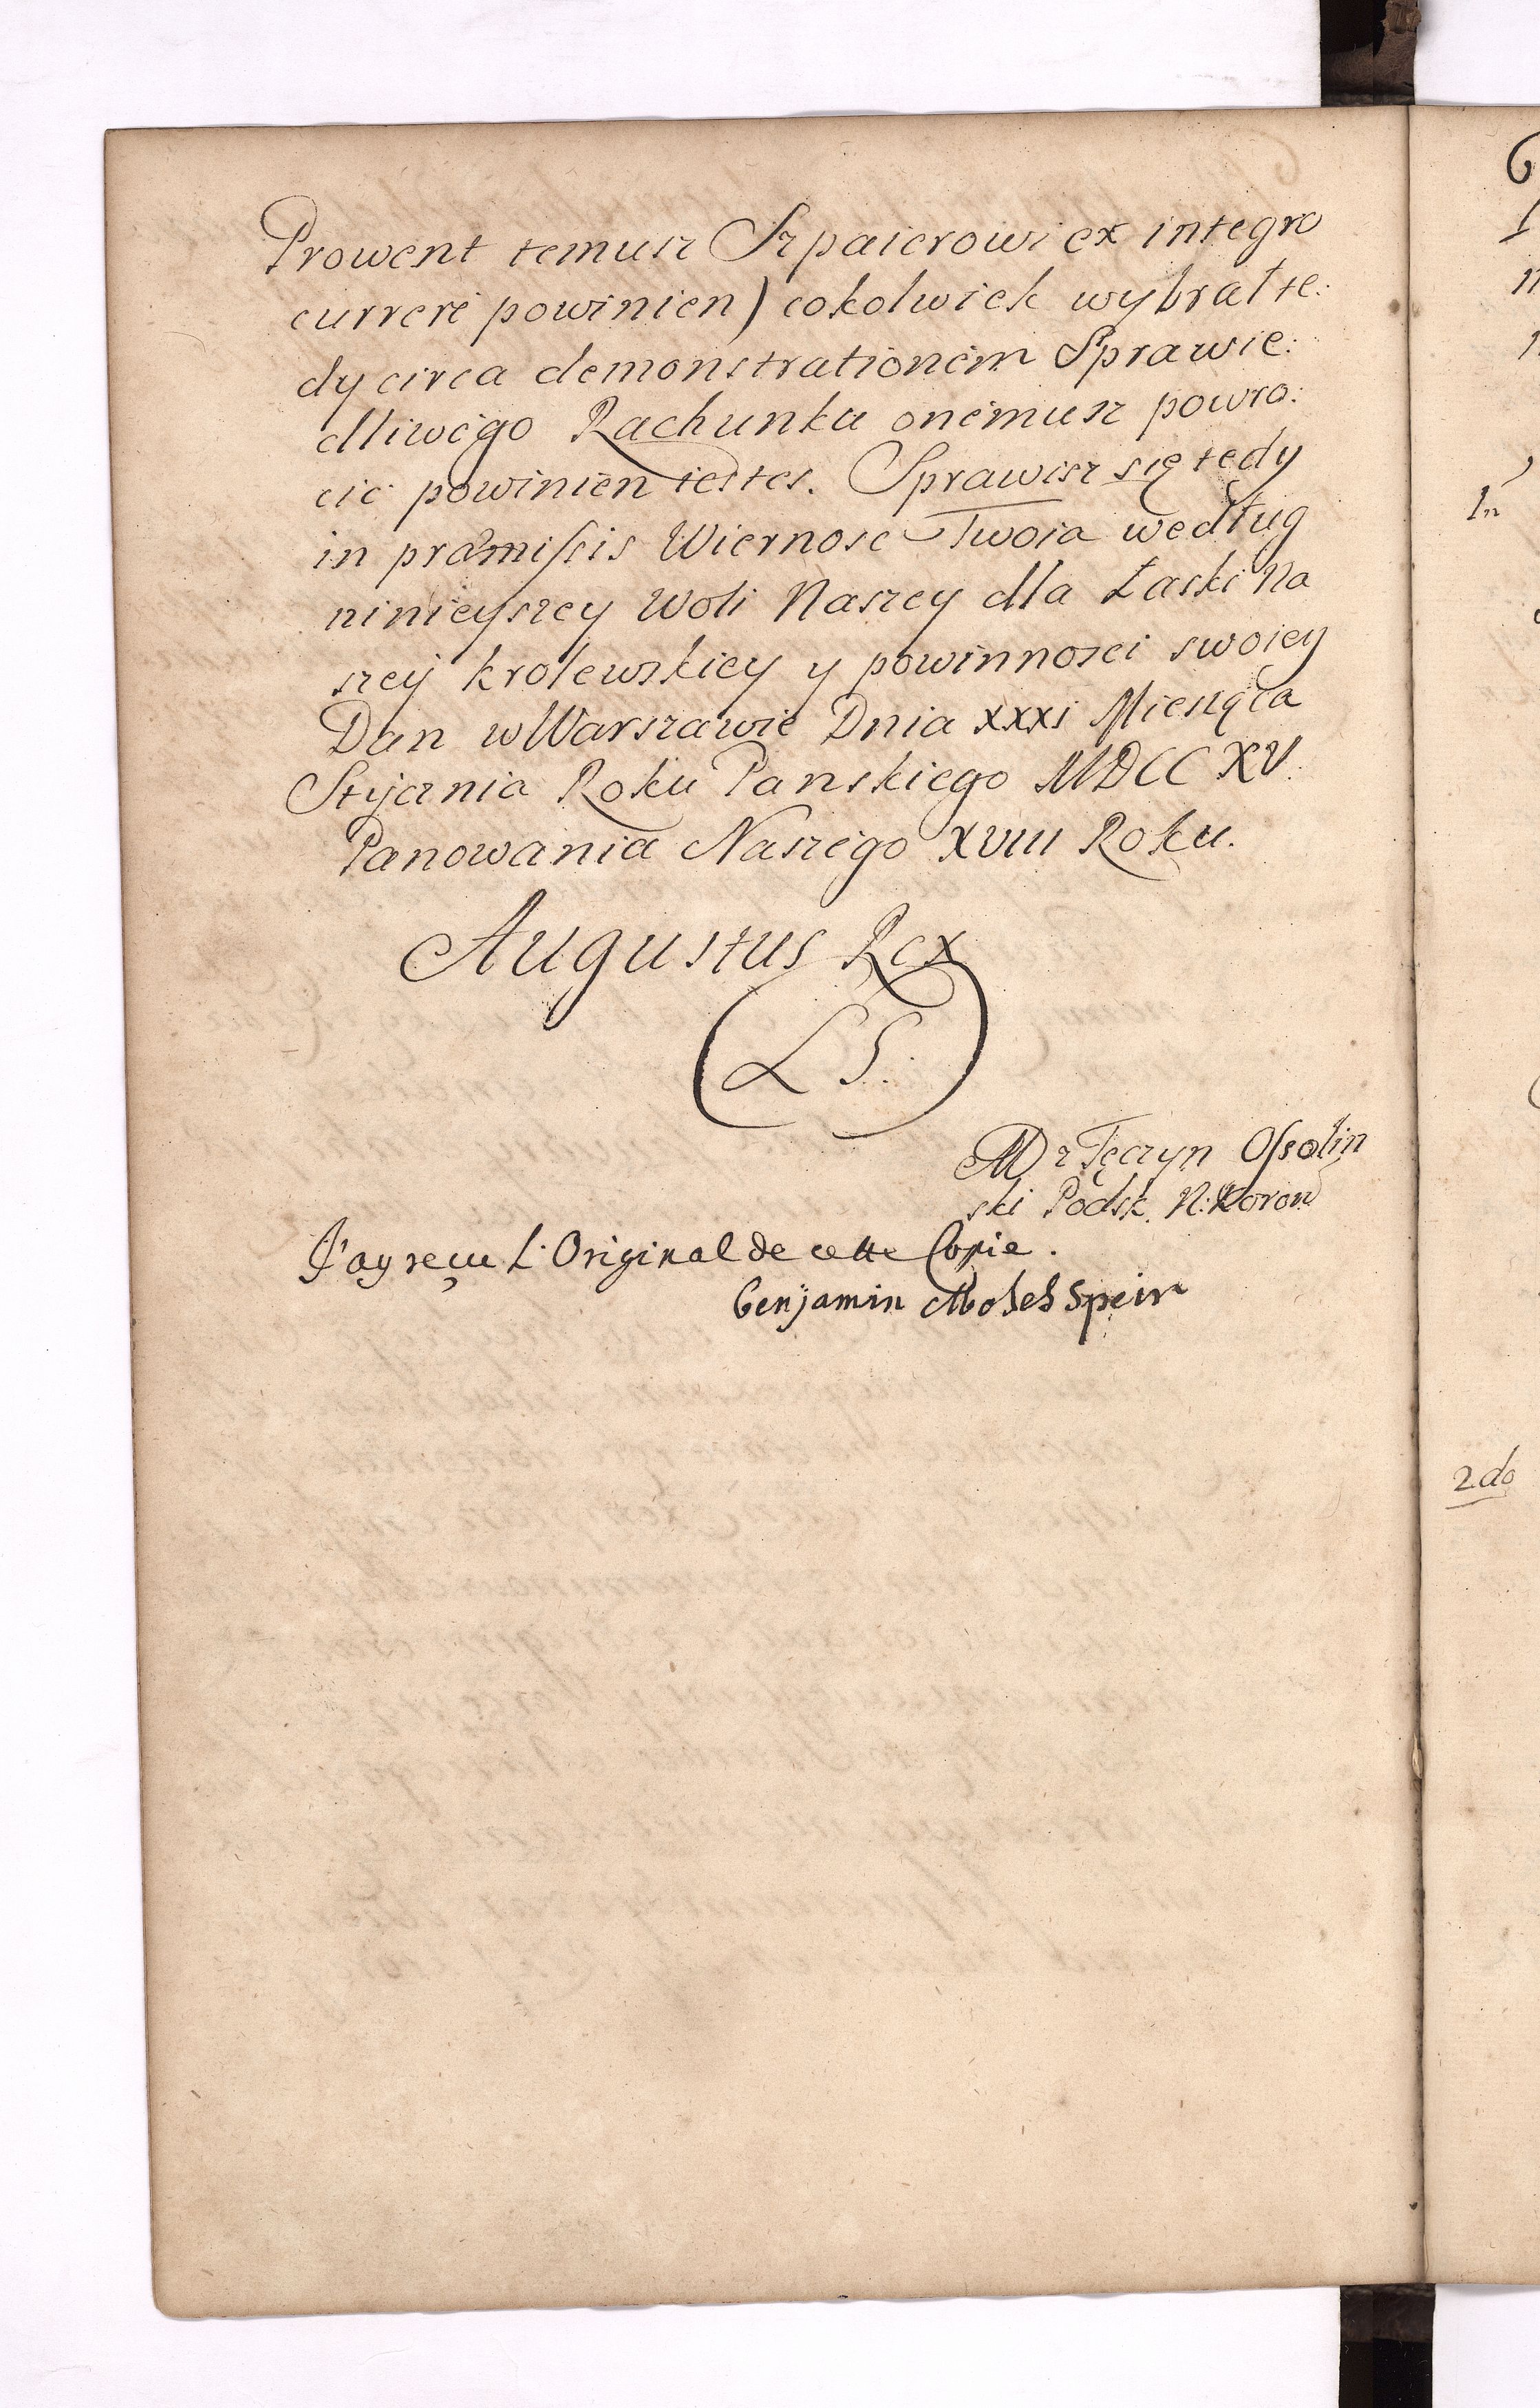 Prowent temusz Szpaierowi ex integro
currere powinien) cokolwiek wybrał te:
dy circa demonstrationem Sprawie:
dliwego Rachunku onemusz powro:
cic powinien iestes. Sprawisz się tedy
in præmissis Wiernosc Twoia według
ninieyszey Woli Naszey dla Łaski Na
szey krolewskiey y powinnosci swoiey
Dan w Warszawie Dnia XXXI Miesiąca
Stycznia Roku Panskiego MDCCXV.
Panowania Naszego XVIII Roku.
Augustus Rex
L S.
M z Tęczyn Ossolin
ski Podsk. N: Koron
J'ay reçu L'Original de cette Copie.
Benjamin Moses Speir
6
1n
2do